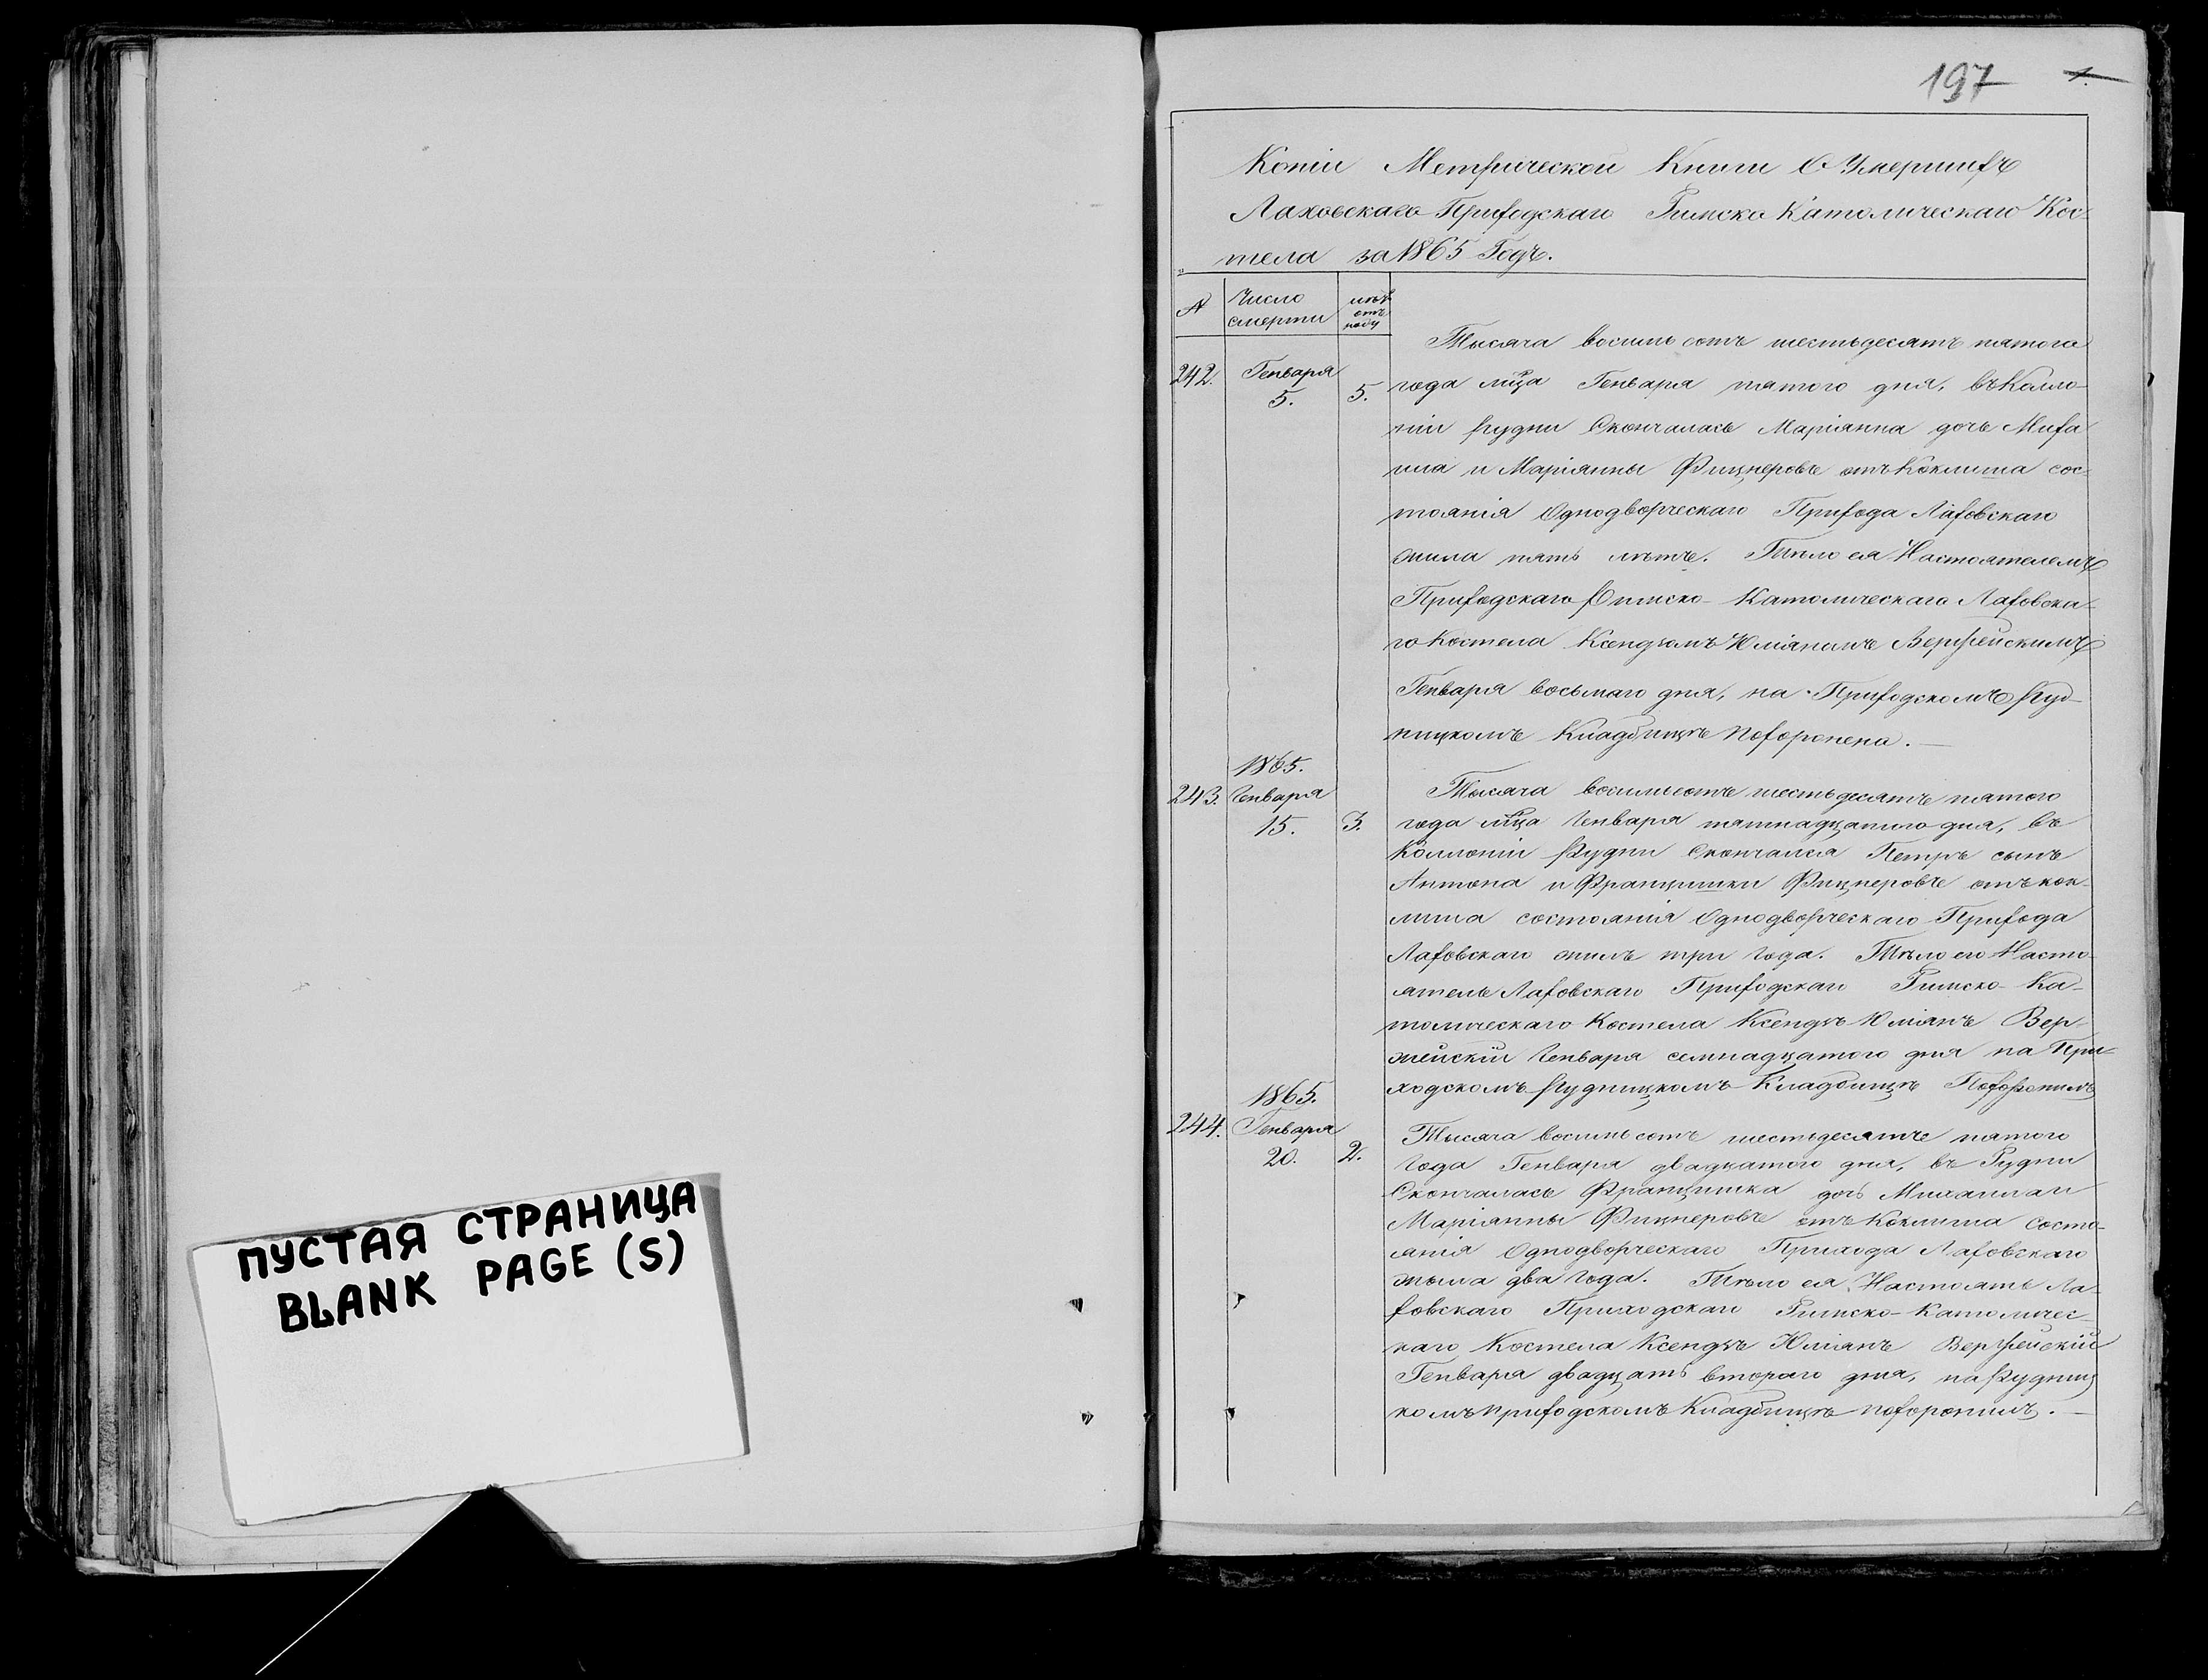 ПУСТАЯ СТРАНИЦА
BLANK PAGE (S)
197 1.
Копіи Метрической Книги О Умершихъ
Лаховскаго Приходскаго Римско Католическаго Кос-
тела за 1865 Годъ.
№ Число смерти лѣтъ отъ роду
Тысяча восимь сотъ шестьдесятъ пятого
242. Генваря 5. 5. года мца Генваря пятого дня, въ Колло-
ніи Рудни Скончалась Маріанна дочь Миха
ила и Маріянны Фицнеровъ отъ Коклиша сос-
тоянія Однодворческаго Прихода Лаховскаго
жила пять лѣтъ. Тѣло ея Настоятелемъ
Приходскаго Римско-Католическаго Лаховска-
го Костела Ксендзомъ Юліяномъ Вержейскимъ
Генваря восьмаго дня, на Приходскомъ Руд-
ницкомъ Кладбищѣ похоронена.
1865.
243. Генваря 15. 3. Тысяча восимьсотъ шестьдесятъ пятого
года мца Генваря пятнадцатого дня, въ
Коллоніи Рудни Скончался Петръ сынъ
Антона и Францишки Фицнеровъ отъ кок-
лиша состоянія Однодворческаго Прихода
Лаховскаго жилъ три года. Тѣло его Насто-
ятель Лаховскаго Приходскаго Римско-Ка-
толическаго Костела Ксендзъ Юліянъ Вер-
жейскій Генваря семнадцатого дня на При-
ходскомъ Рудницкомъ Кладбищѣ Похоронилъ
1865.
244. Генваря 20. 2. Тысяча восимьсотъ шестьдесятъ пятого
Года Генваря двадцатого дня, въ Рудни
Скончалась Францишка дочь Михаила и
Маріянны Фицнеровъ отъ Коклиша состо-
янія Однодворческаго Прихода Лаховскаго
жыла два года. Тѣло ея Настоять Ла-
ховскаго Приходскаго Римско-Католичес-
каго Костела Ксендзъ Юліянъ Вержейскій
Генваря двадцать втораго дня, на Рудниц
комъ приходскомъ Кладбищѣ похоронилъ.